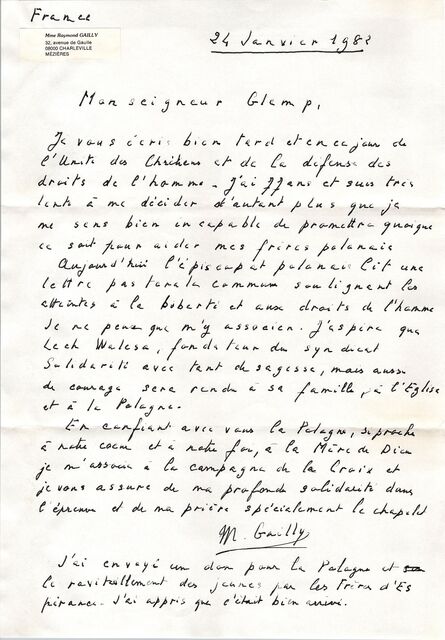 France
Mme Raymond GAILLY
32, avenue de Gaulle
08000 CHARLEVILLE
MÉZIÈRES
24 Janvier 1982
Monseigneur Glemp,
Je vous écris bien tard et en ce jour de
l'Unité des Chrétiens et de la défense des
droits de l'homme. J'ai 77 ans et suis très
lente à me décider d'autant plus que je
me sens bien incapable de promettre quoique
ce soit pour aider mes frères polonais
Aujourd'hui l'épiscopat polonais lit une
lettre pastorale commune soulignant les
atteintes à la liberté et aux droits de l'homme
Je ne peux que m'y associer. J'aspire que
Lech Walesa, fondateur du syndicat
Solidarité avec tant de sagesse, mais aussi
de courage sera rendu à sa famille, à l'Eglise
et à la Pologne.
En confiant avec vous la Pologne, si proche
à notre coeur et à notre foi, à la Mère de Dieu
je m'associe à la campagne de la Croix et
je vous assure de ma profonde solidarité dans
l'épreuve et de ma prière spécialement le chapelet
M. Gailly
J'ai envoyé un don pour la Pologne et
le ravitaillement des jeunes par les Frères d'Es
pérance. J'ai appris que c'était bien arrivé.